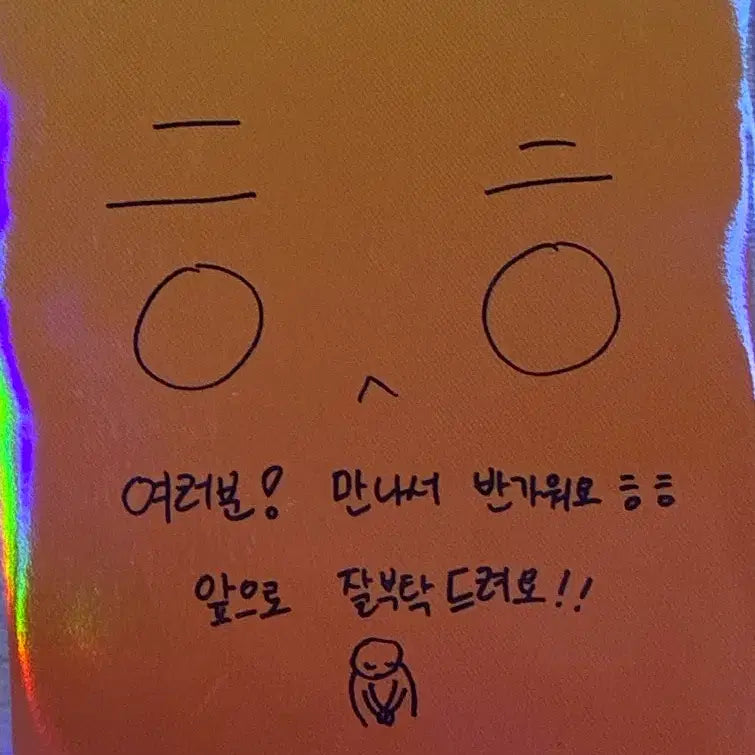 ㅎ ^ ㅎ
여러분! 만나서 반가워요 ㅎㅎ
앞으로 잘부탁드려요!!